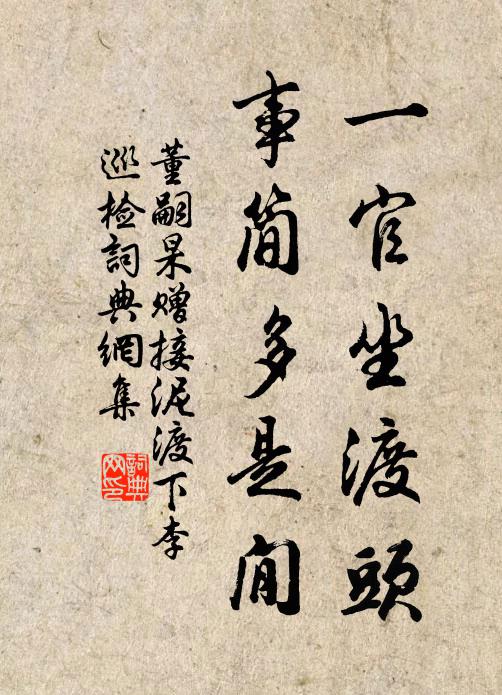 一官坐渡頭
事簡多是閒
董嗣杲赠接泥渡下李
巡检詞典網集
詞典網印